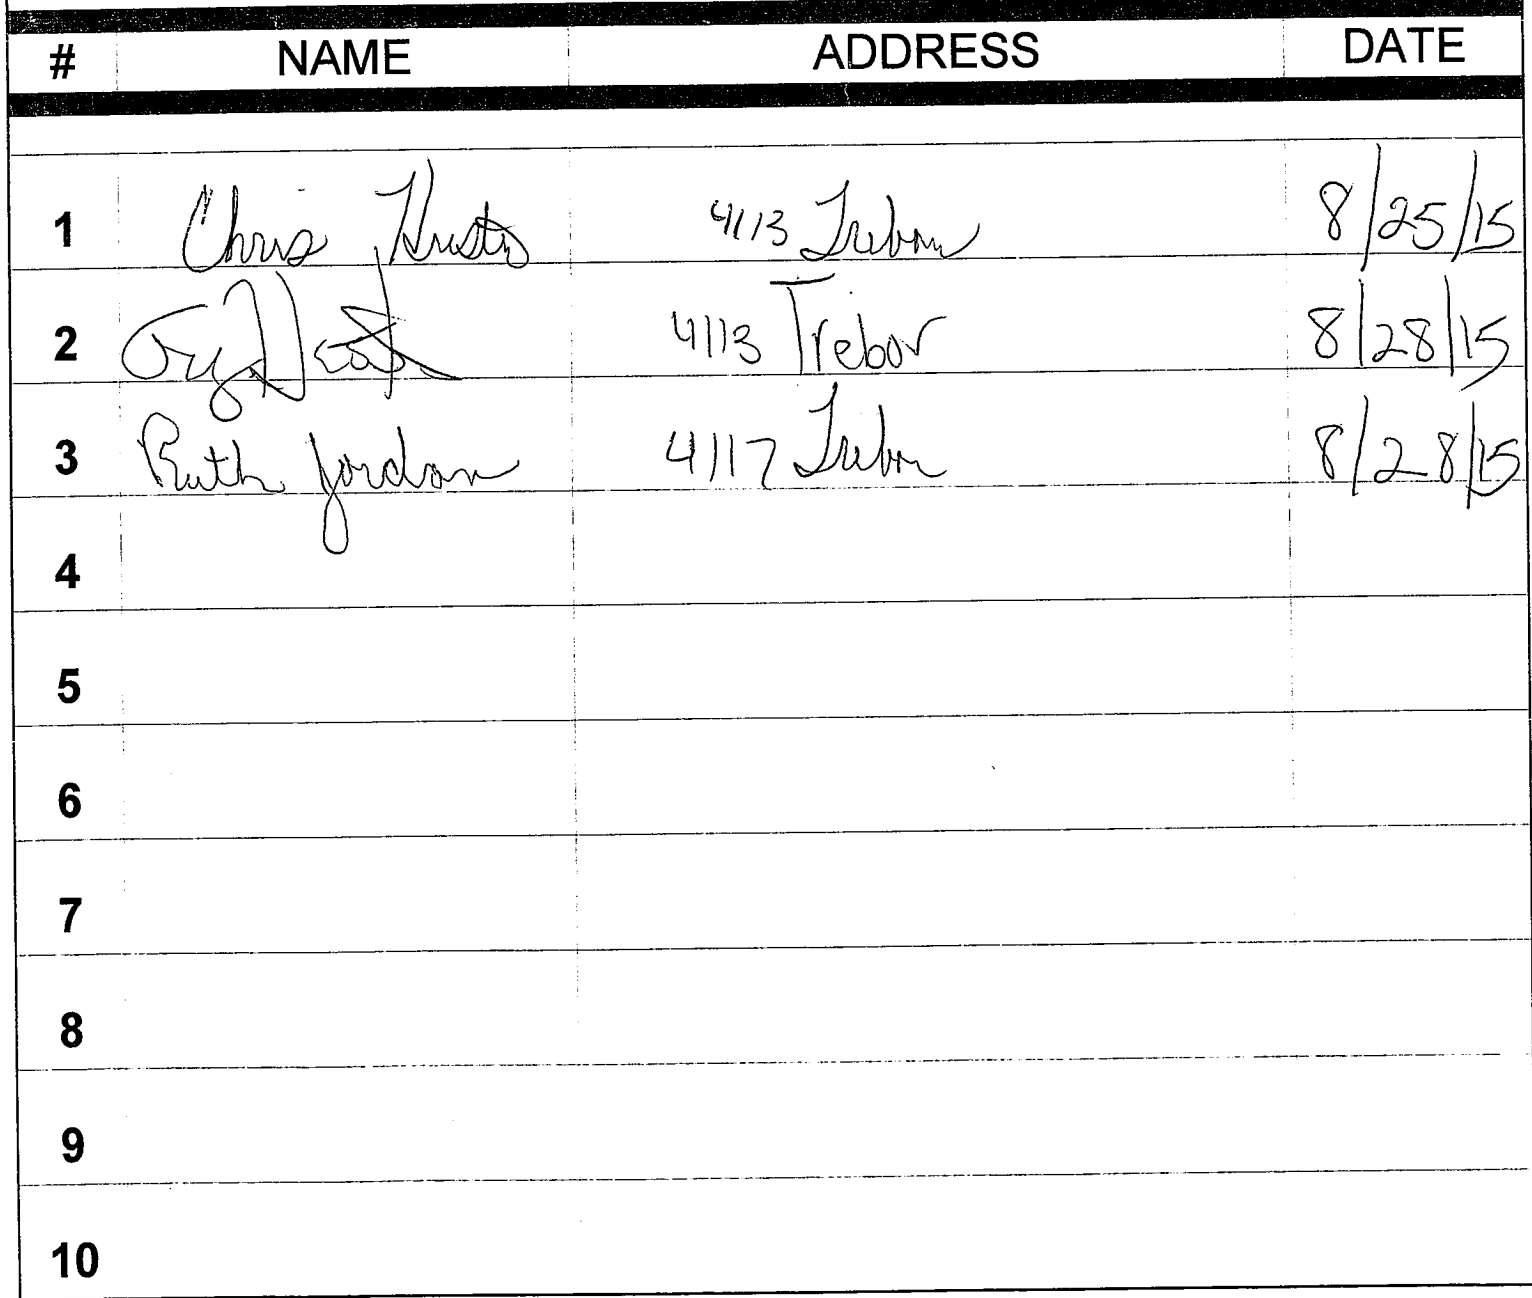 # NAME ADDRESS DATE
1 Chris 4113 Trebor 8/25/15
2 4113 Trebor 8/28/15
3 Ruth Jordan 4117 Trebor 8/28/15
4
5
6
7
8
9
10